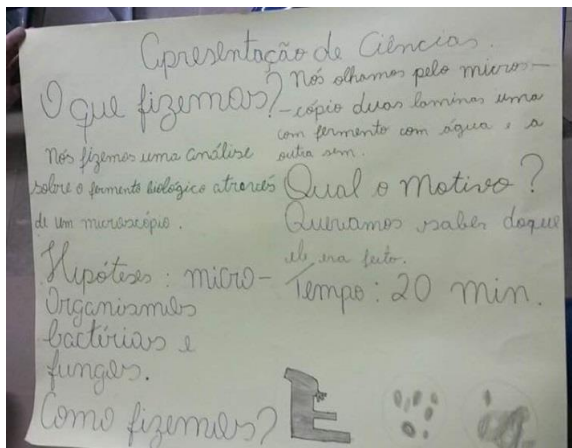 Apresentação de Ciências.
O que fizemos?
Nós fizemos uma análise
sobre o fermento biológico através
de um microscópio.
Hipóteses: micro-
Organismos
bactérias e
fungos.
Como fizemos?
Nós olhamos pelo micros-
-cópio duas laminas uma
com fermento com água e a
outra sem.
Qual o Motivo?
Queriamos saber doque
ele era feito.
Tempo: 20 min.